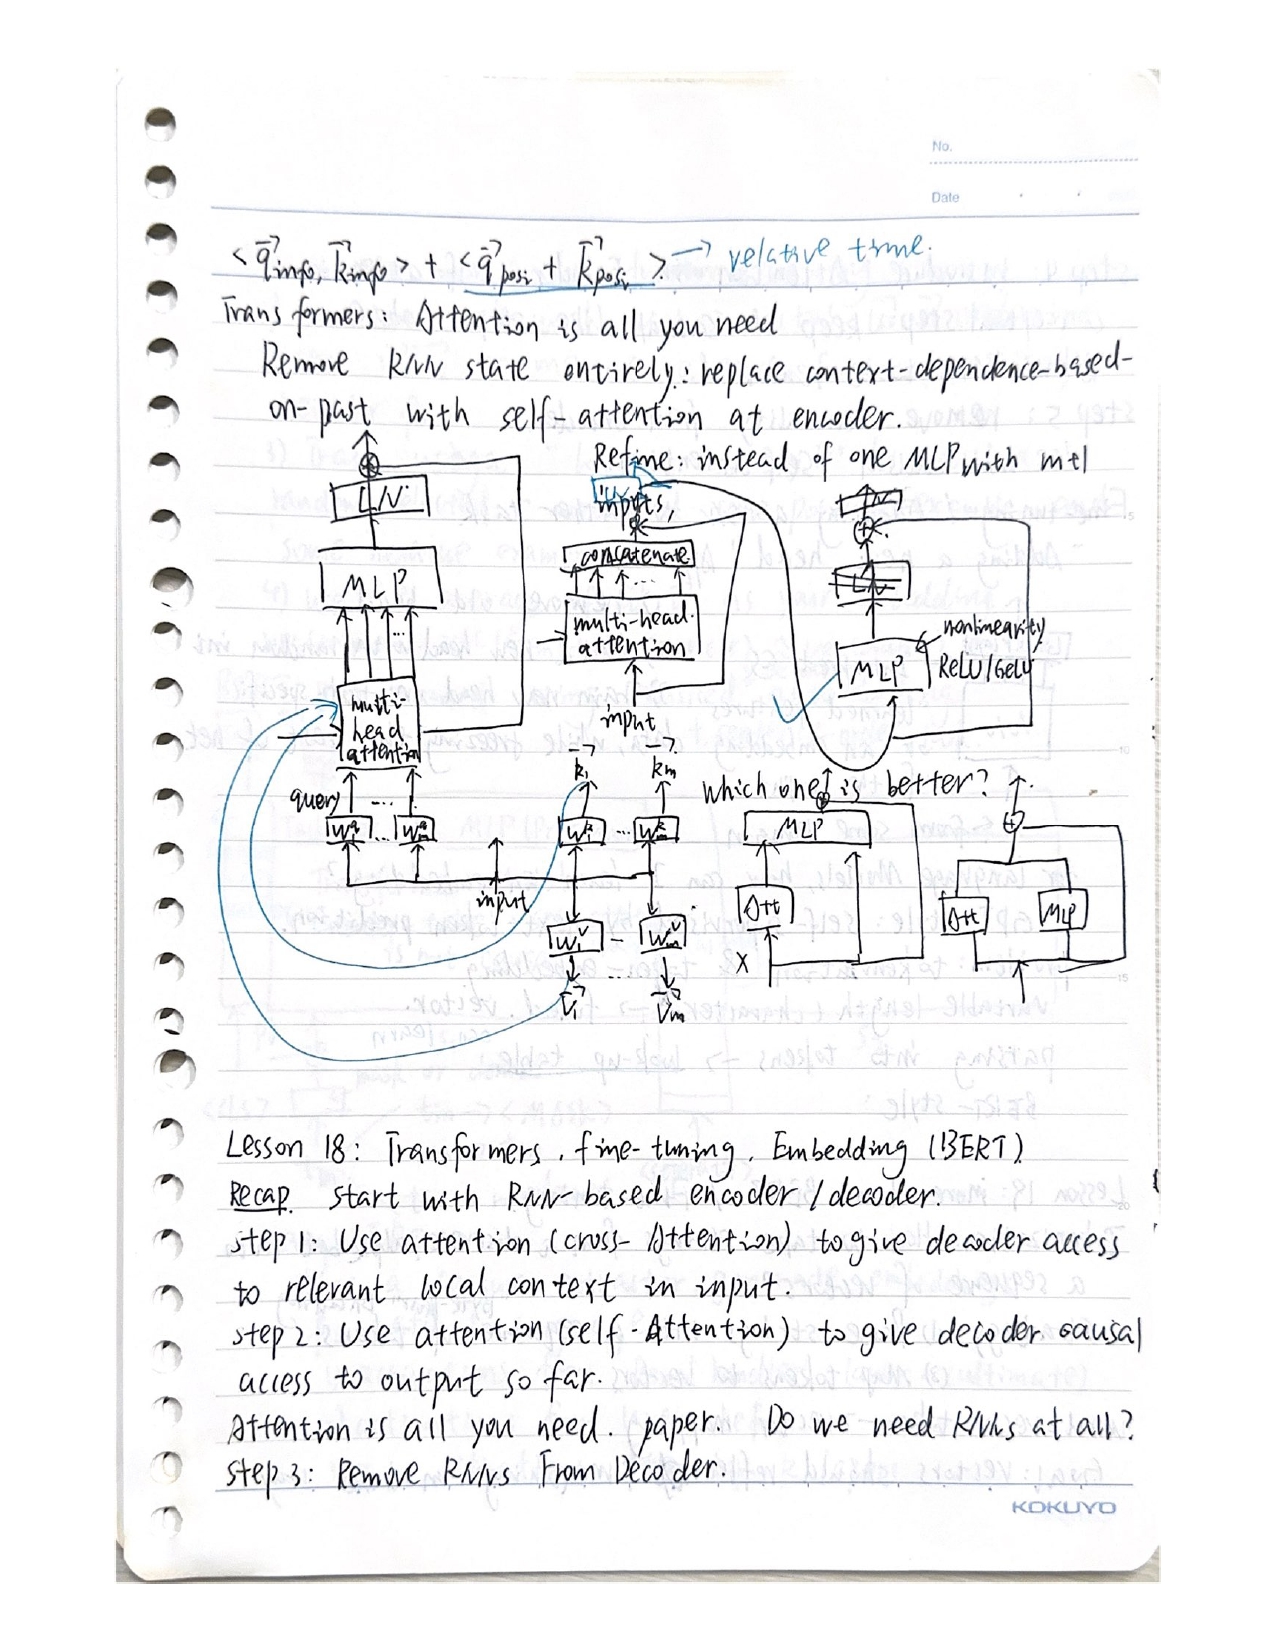 No.
Date
< q⃗info, k⃗info > + < q⃗posi + k⃗posi > → relative time.
Transformers: Attention is all you need
Remove RNN state entirely: replace context-dependence-based-
on-past with self-attention at encoder.
Refine: instead of one MLP with m+1
inputs,
LN
MLP
...
multi-
head
attention
query
...
W₁^q ... Wm^q
input
concatenate
...
multi-head
attention
input
k⃗₁ k⃗m
W₁^k ... Wm^k
W₁^v – Wm^v
...
V⃗₁ V⃗m
LN
LN
MLP
nonlinearity
ReLU/GeLU
Which one is better?
MLP
Att
X
Att MLP
Lesson 18: Transformers, fine-tuning, Embedding (BERT)
Recap. Start with RNN-based encoder/decoder.
step 1: Use attention (cross-Attention) to give decoder access
to relevant local context in input.
step 2: Use attention (self-Attention) to give decoder causal
access to output so far.
Attention is all you need. paper. Do we need RNNs at all?
step 3: Remove RNNs From Decoder.
KOKUYO